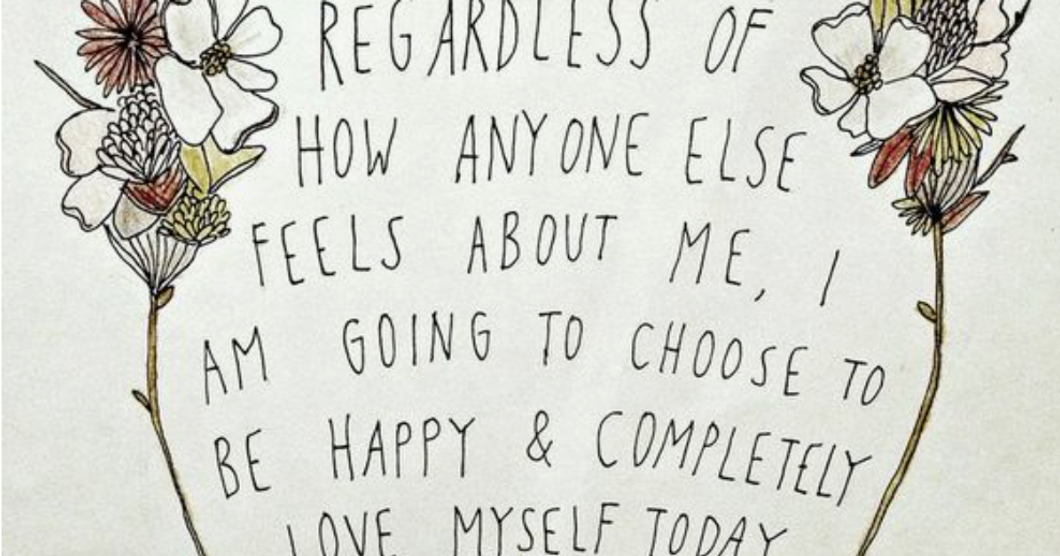 REGARDLESS OF
HOW ANYONE ELSE
FEELS ABOUT ME, I
AM GOING TO CHOOSE TO
BE HAPPY & COMPLETELY
LOVE MYSELF TODAY